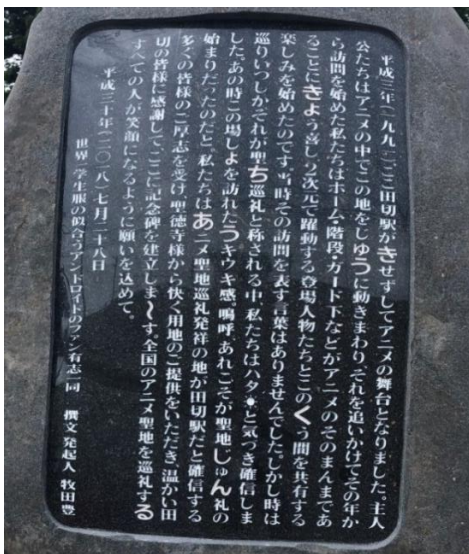 平成三年(一九九一)、ここ田切駅がきせずしてアニメの舞台となりました。主人
公たちはアニメの中でこの地をじゅうに動きまわり、それを追いかけてその年か
ら訪問を始めた私たちはホーム・階段・ガード下などがアニメのそのまんまであ
ることにきょう喜し、2次元で躍動する登場人物たちとこのくう間を共有する
楽しみを始めたのです。当時その訪問を表す言葉はありませんでした。しかし時は
巡りいつしかそれが聖ち巡礼と称される中、私たちはハタ★と気づき確信しま
した。あの時この場しょを訪れたうキウキ感。嗚呼、あれこそが聖地じゅん礼の
始まりだったのだと。私たちはあニメ聖地巡礼発祥の地が田切駅だと確信する
多くの皆様のご厚志を受け、聖徳寺様から快く用地のご提供をいただき、温かい田
切の皆様に感謝して、ここに記念碑を建立しま〜す。全国のアニメ聖地を巡礼する
すべての人が笑顔になるように願いを込めて。
平成三十年(二〇一八)七月二十八日
世界一学生服の似合うアンドロイドのファン有志一同 撰文発起人 牧田豊